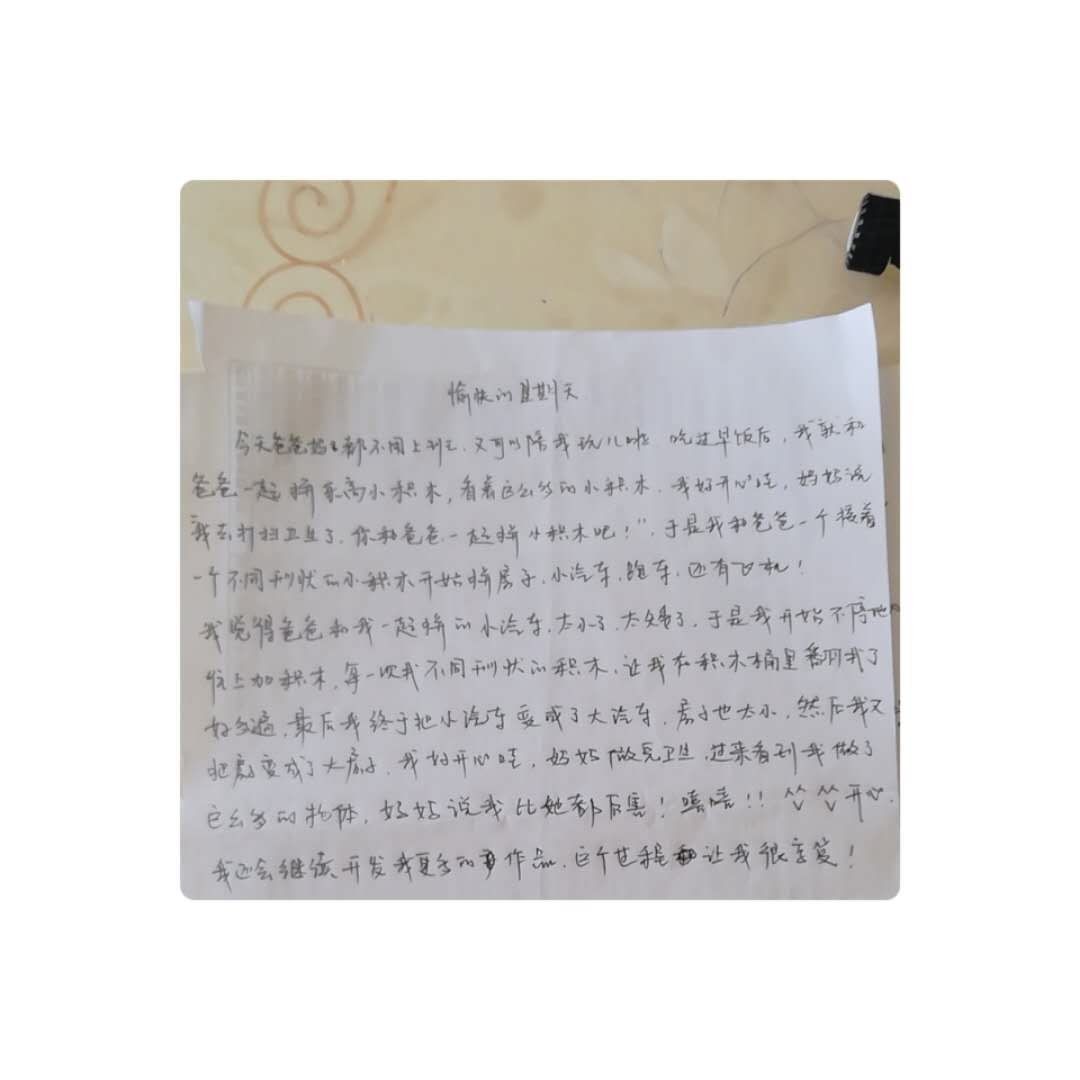 愉快的星期天
今天爸爸妈妈都不用上班，又可以陪我玩儿啦 吃过早饭后，我就和
爸爸一起拼乐高小积木，看着这么多的小积木，我好开心哇，妈妈说
我去打扫卫生了，你和爸爸一起拼小积木吧！”，于是我和爸爸一个接着
一个不同形状的小积木开始拼房子，小汽车，跑车，还有飞机！
我觉得爸爸和我一起拼的小汽车，太小了，太矮了，于是我开始不停地
往上加积木，每一次找不同形状的积木，让我在积木桶里翻找了
好多遍，最后我终于把小汽车变成了大汽车，房子也太小，然后我又
把房变成了大房子，我好开心哇，妈妈做完卫生，过来看到我做了
这么多的物体，妈妈说我比她都厉害！嘻嘻！！ 开心.
我还会继续开发我更多的作品，这个过程让我很享受！